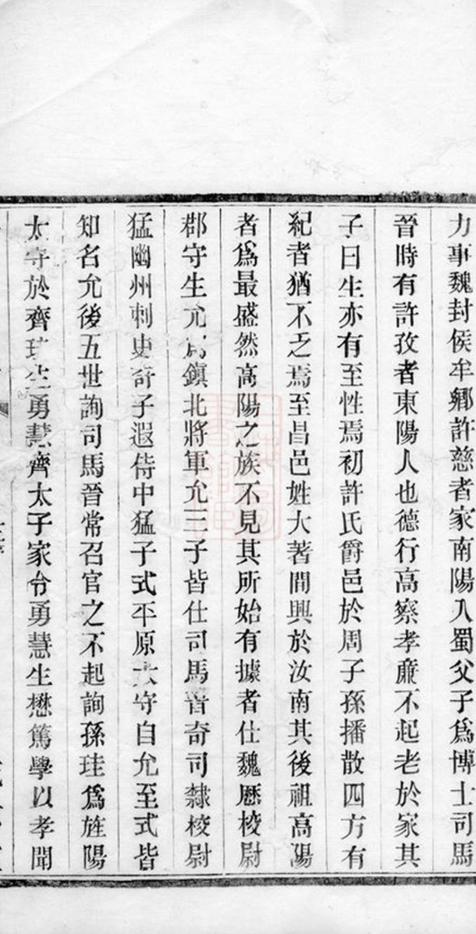 力事魏封侯牟鄉許慈者家南陽入蜀父子爲博士司馬
晉時有許孜者東陽人也德行高察孝廉不起老於家其
子曰生亦有至性焉初許氏爵邑於周子孫播散四方有
紀者猶不乏焉至昌邑姓大著間興於汝南其後祖高陽
者爲最盛然高陽之族不見其所始有據者仕魏歷校尉
郡守生允爲鎮北將軍允三子皆仕司馬晉奇司隸校尉
猛幽州刺史奇子遐侍中猛子式平原太守自允至式皆
知名允後五世詢司馬晉常召官之不起詢孫珪爲旌陽
太守於齊珪生勇慧齊太子家令勇慧生懋篤學以孝聞